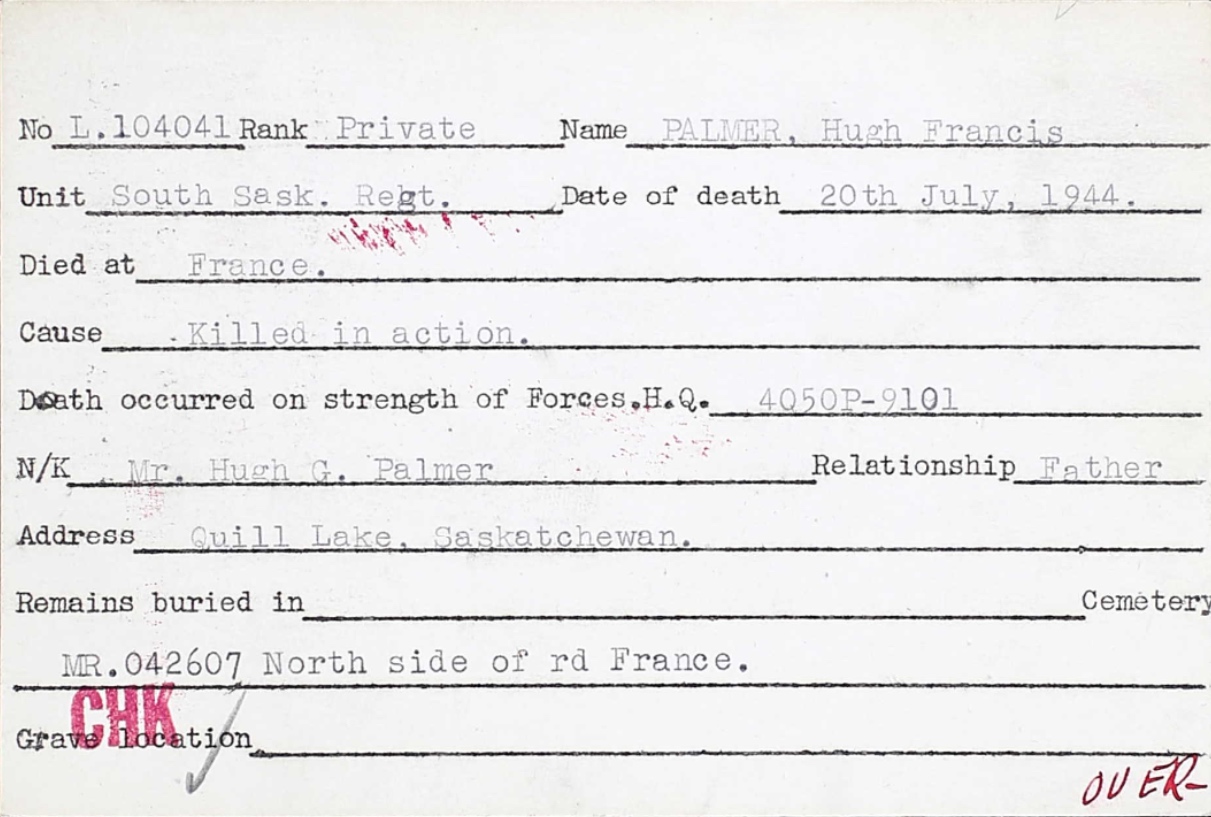 No L.104041 Rank Private Name PALMER, Hugh Francis
Unit South Sask. Regt. Date of death 20th July, 1944.
Died at France.
Cause Killed in action.
Death occurred on strength of Forces.H.Q. 4050P-9101
N/K Mr. Hugh G. Palmer Relationship Father
Address Quill Lake, Saskatchewan.
Remains buried in Cemetery
MR.042607 North side of rd France.
CHK
Grave location
OVER-